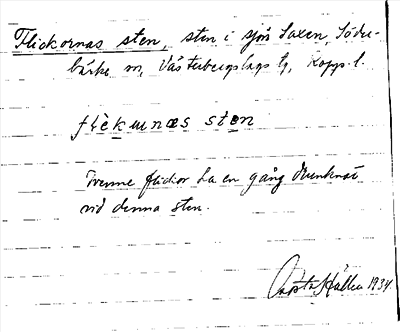 Flickornas sten, sten i sjön Saxen, Söder-
bärke sn, Västerbergslags tg, Kopp. l.
flèkunæs sten
Tvenne flickor ha en gång drunknat
vid denna sten.
Gösta Hållen 1934